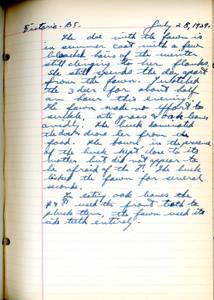 Eastoria - B.S. July 28, 1929.
The doe with the fawn is
in summer coat with a few
of the winter
still clinging to her flanks.
She still spends the day apart
from the fawn. Watched
the 3 deer for about half
an hour this evening. The
fawn made no effort to
suckle, ate grass & oak leaves
avidly. The buck dominated
the doe & drove her from the
food. The fawn in the presence
of the buck kept close to its
mother but did not appear to
be afraid of the ♂. The buck
licked the fawn for several
seconds.
In eating oak leaves the
♂ & ♀ used the front teeth to
pluck them, the fawn used its
side teeth entirely.